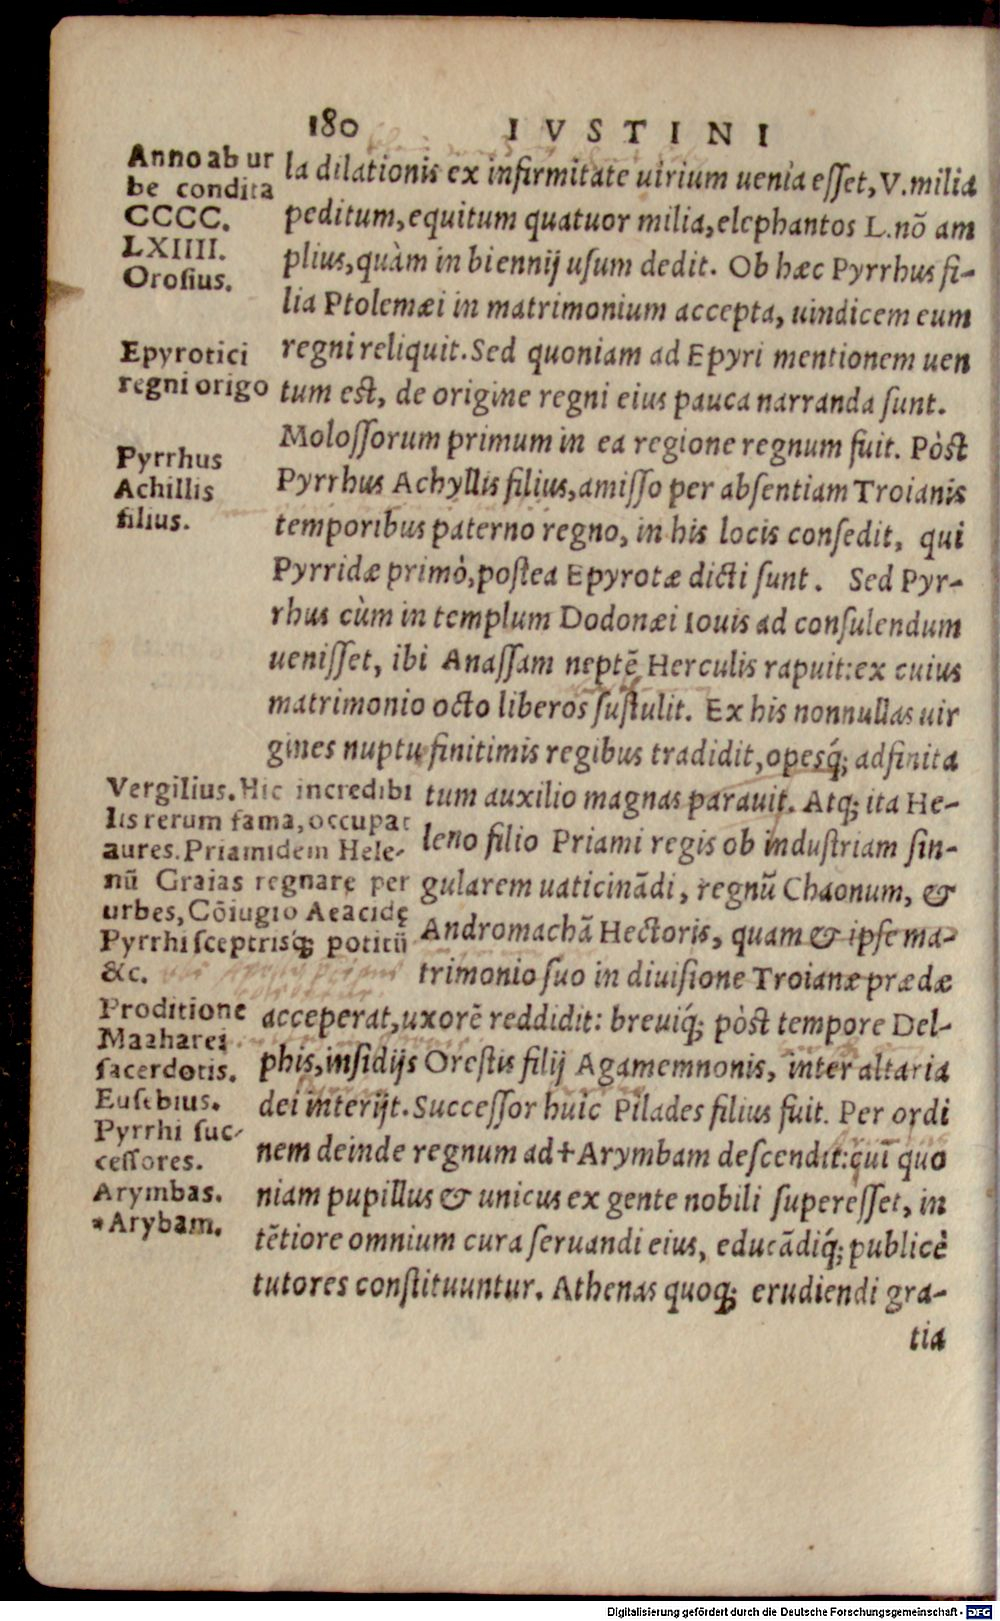 180 IVSTINI
Anno ab ur
be condita
CCCC.
LXIIII.
Orosius.
Epyrotici
regni origo
Pyrrhus
Achillis
filius.
la dilationis ex infirmitate uirium uenia esset, V. milia
peditum, equitum quatuor milia, elephantos L. nõ am
plius, quàm in biennij usum dedit. Ob hæc Pyrrhus fi-
lia Ptolemæi in matrimonium accepta, uindicem eum
regni reliquit. Sed quoniam ad Epyri mentionem uen
tum est, de origine regni eius pauca narranda sunt.
Molossorum primum in ea regione regnum fuit. Pòst
Pyrrhus Achyllis filius, amisso per absentiam Troianis
temporibus paterno regno, in his locis consedit, qui
Pyrridæ primò, postea Epyrotæ dicti sunt. Sed Pyr-
rhus cùm in templum Dodonæi Iouis ad consulendum
uenisset, ibi Anassam neptẽ Herculis rapuit: ex cuius
matrimonio octo liberos sustulit. Ex his nonnullas uir
gines nuptu finitimis regibus tradidit, opesq́; adfinita
tum auxilio magnas parauit. Atq; ita He-
leno filio Priami regis ob industriam sin-
gularem uaticinãdi, regnũ Chaonum, &
Andromachã Hectoris, quam & ipse ma-
trimonio suo in diuisione Troianæ prædæ
acceperat, uxorẽ reddidit: breuiq́; pòst tempore Del-
phis, insidijs Orestis filij Agamemnonis, inter altaria
dei interijt. Successor huic Pilades filius fuit. Per ordi
nem deinde regnum ad + Arymbam descendit: qui quo
niam pupillus & unicus ex gente nobili superesset, in
tẽtiore omnium cura seruandi eius, educãdiq́; publicè
tutores constituuntur. Athenas quoq; erudiendi gra-
tia
Vergilius. Hic incredibi
lis rerum fama, occupat
aures. Priamidem Hele-
nũ Graias regnare per
urbes, Cõiugio Aeacidę
Pyrrhi sceptrisq́; potitũ
&c.
Proditione
Maaharei
sacerdotis.
Eusebius.
Pyrrhi suc-
cessores.
Arymbas.
*Arybam.
Digitalisierung gefördert durch die Deutsche Forschungsgemeinschaft - DFG